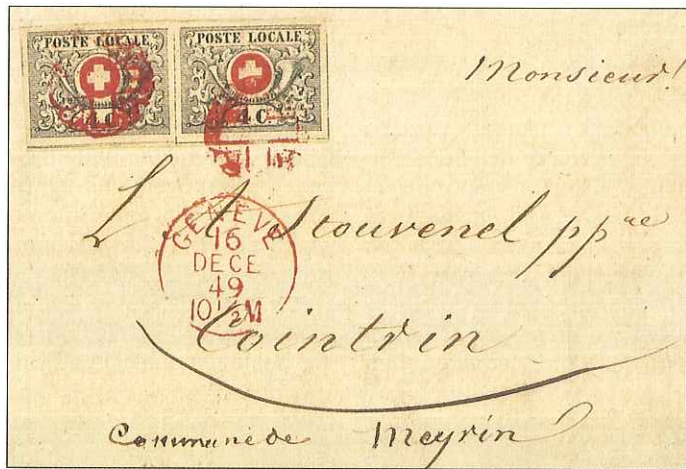 POSTE LOCALE POSTE LOCALE
4 C. 4 C.
Monsieur!
L Stouvenel ppre
GENEVE
16
DECE
49
10½M
Cointrin
Commune de Meyrin